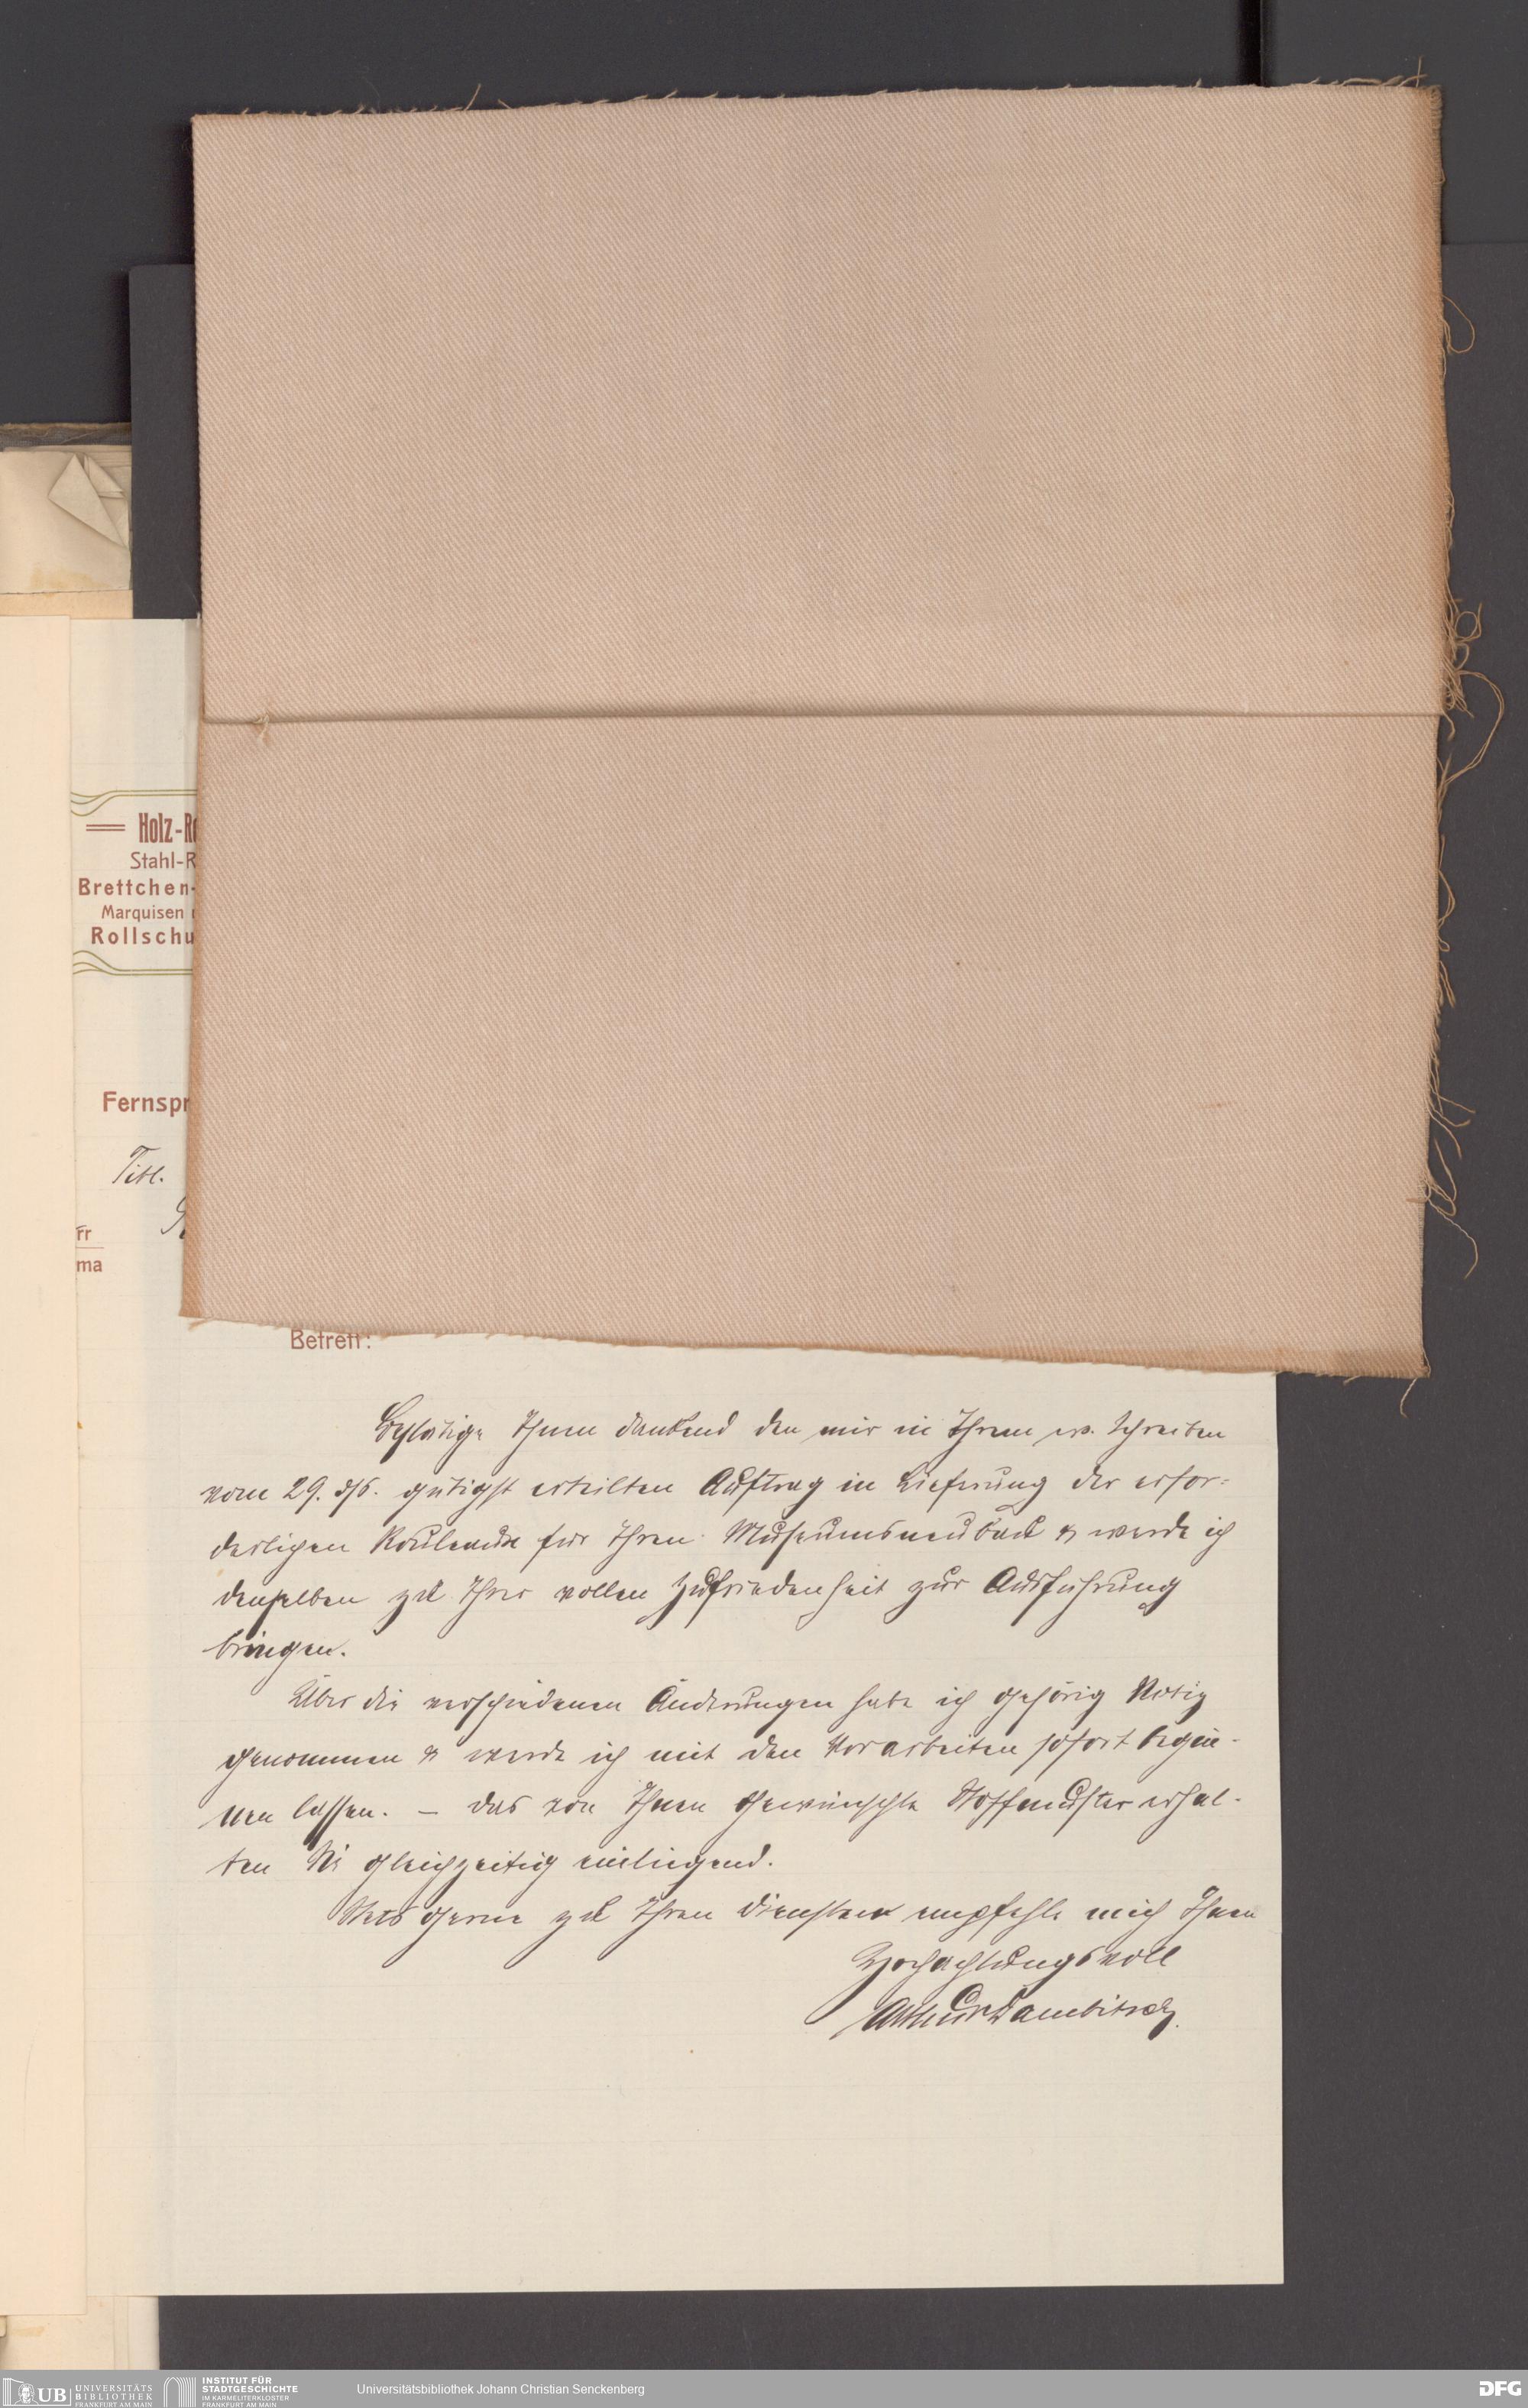 Holz-Ro
Stahl-R
Brettchen-
Marquisen
Rollschu
Fernspr
Titl.
rr
ma
Betreff:
Bestätige Ihnen dankend den mir in Ihrem w. Schreiben
vom 29. ds. gütigst erteilten Auftrag in Lieferung der erfor-
derlichen Rouleaux für Ihren Museumsneubau & werde ich
denselben zu Ihrer vollen Zufriedenheit zur Ausführung
bringen.
Über die verschiedenen Änderungen habe ich gehörig Notiz
genommen & werde ich mit den Vorarbeiten sofort begin-
nen lassen. – Das von Ihnen gewünschte Stoffmuster erhal-
ten Sie gleichzeitig einliegend.
Stets gerne zu Ihren Diensten empfehle mich Ihnen
Hochachtungsvoll
Arthur Dambitsch.
UB UNIVERSITÄTS
BIBLIOTHEK
FRANKFURT AM MAIN
INSTITUT FÜR
STADTGESCHICHTE
IM KARMELITERKLOSTER
FRANKFURT AM MAIN
Universitätsbibliothek Johann Christian Senckenberg
DFG